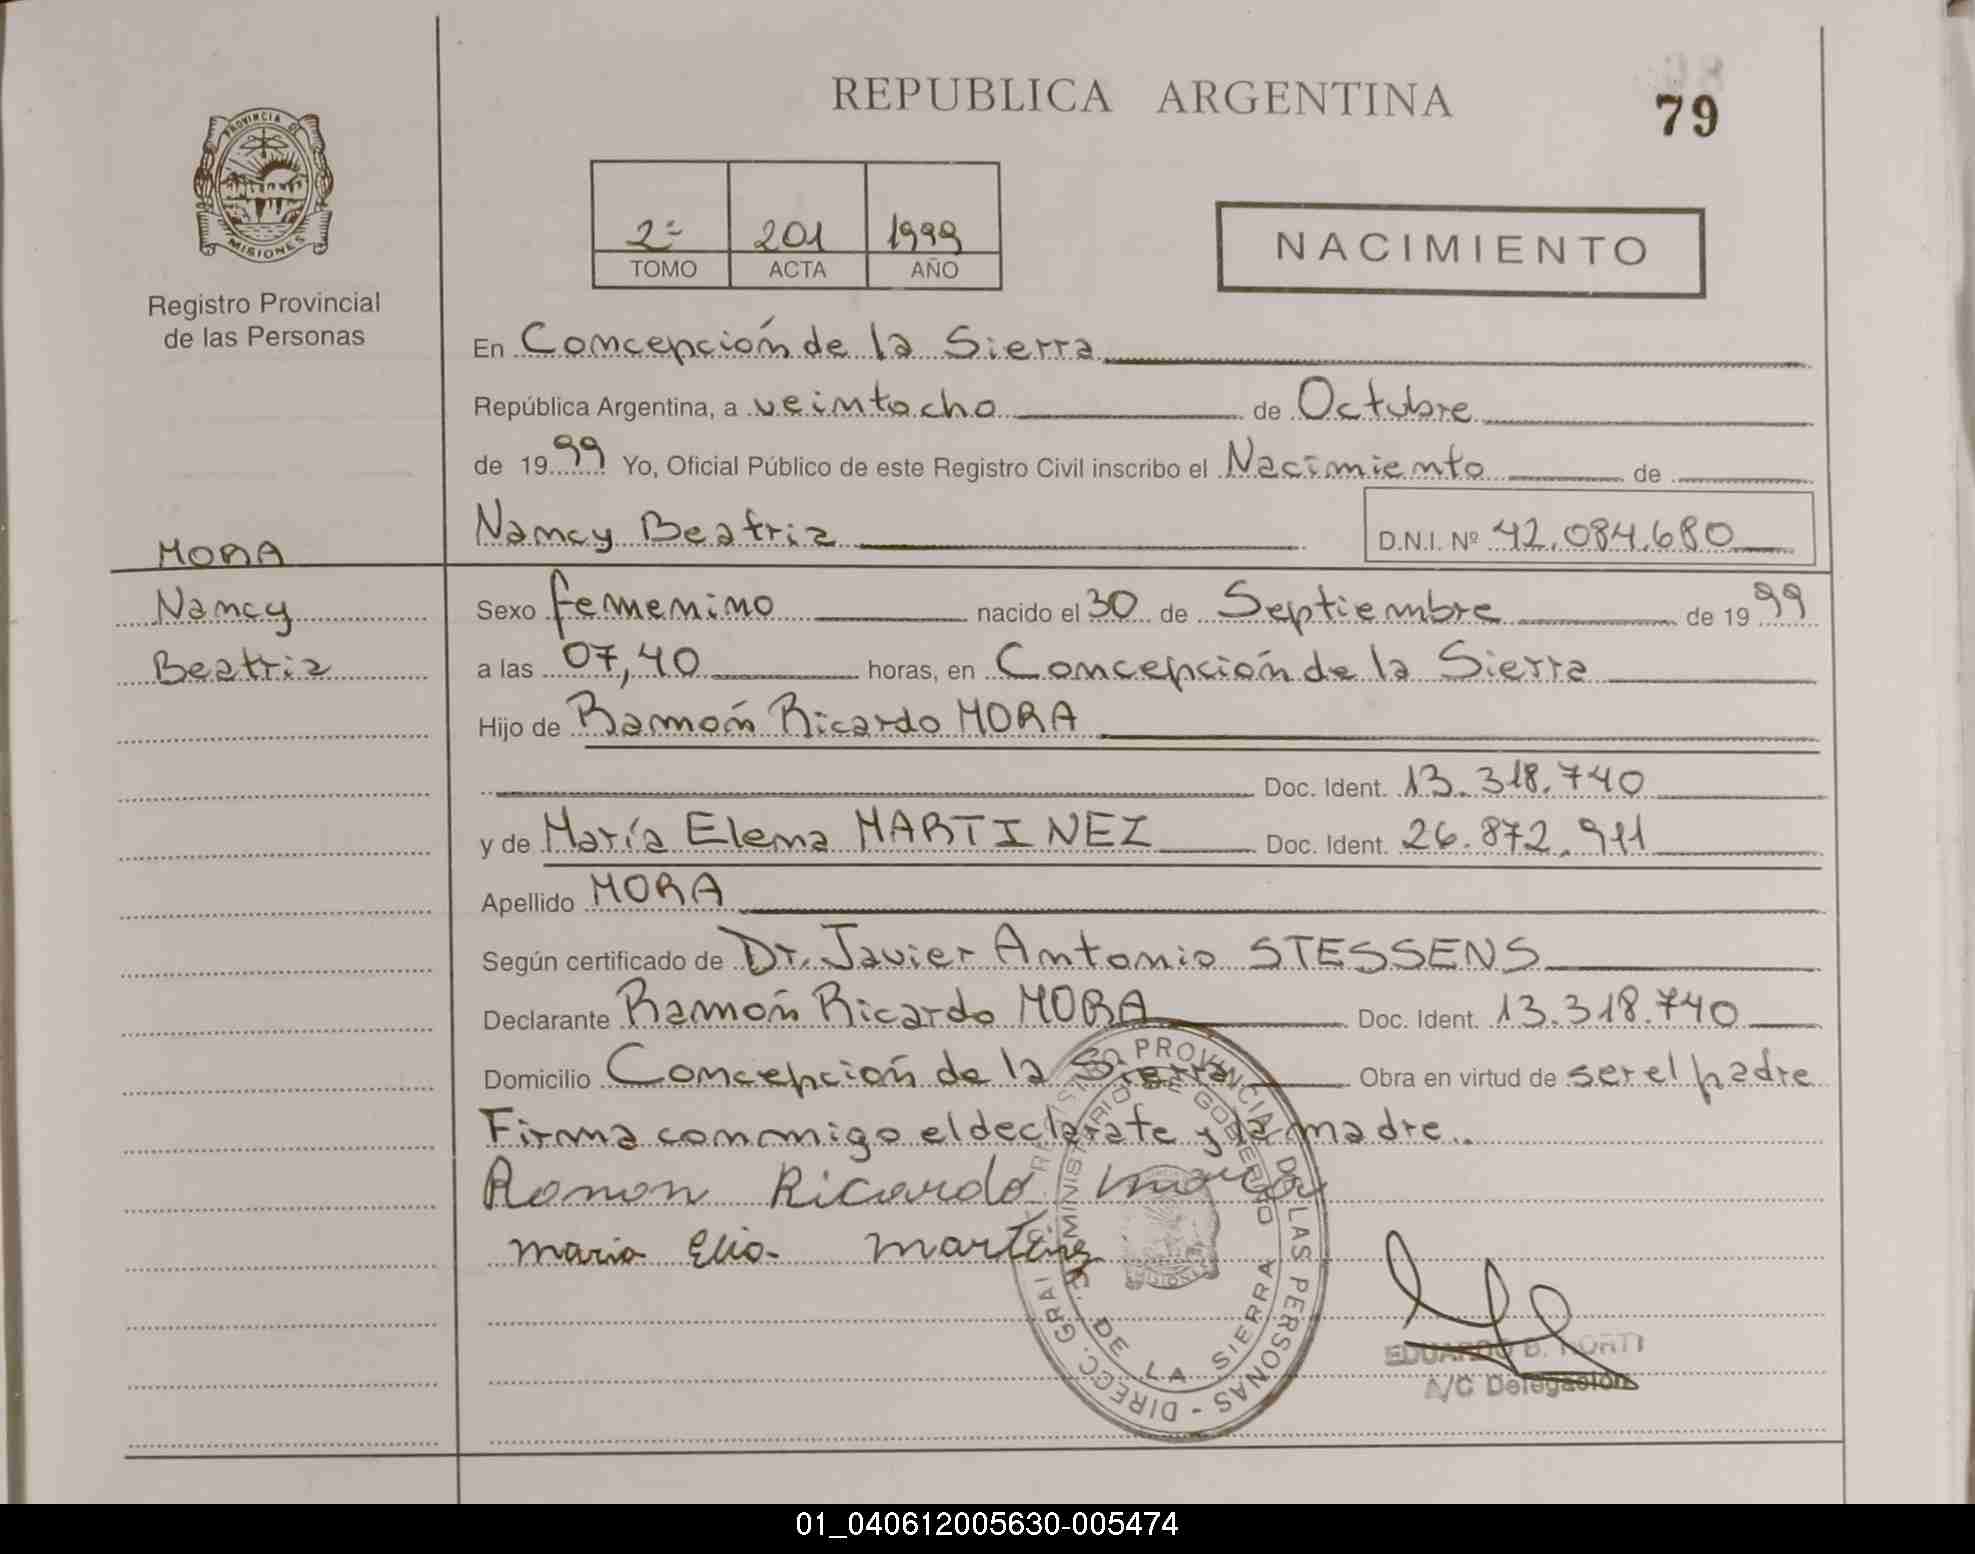 REPUBLICA ARGENTINA
79
PROVINCIA DE
MISIONES
Registro Provincial
de las Personas
2º 201 1999
TOMO ACTA AÑO
NACIMIENTO
En Concepción de la Sierra
República Argentina, a veintocho de Octubre
de 1999 Yo, Oficial Público de este Registro Civil inscribo el Nacimiento de
Nancy Beatriz D.N.I. Nº 42.084.680
MORA
Nancy
Beatriz
Sexo femenino nacido el 30 de Septiembre de 1999
a las 07,40 horas, en Concepción de la Sierra
Hijo de Ramón Ricardo MORA
Doc. Ident. 13.318.740
y de María Elena MARTINEZ Doc. Ident. 26.872.911
Apellido MORA
Según certificado de Dr. Javier Antonio STESSENS
Declarante Ramón Ricardo MORA Doc. Ident. 13.318.740
Domicilio Concepción de la Sierra Obra en virtud de ser el padre
Firma conmigo el declarate y la madre.
Ramon Ricardo mora
maria Elia martinez
DIRECC. GRAL REGISTRO PROVINCIAL DE LAS PERSONAS -
MINISTERIO DE GOBIERNO
C. DE LA SIERRA
EDUARDO B.
A/C Delegación
01_040612005630-005474